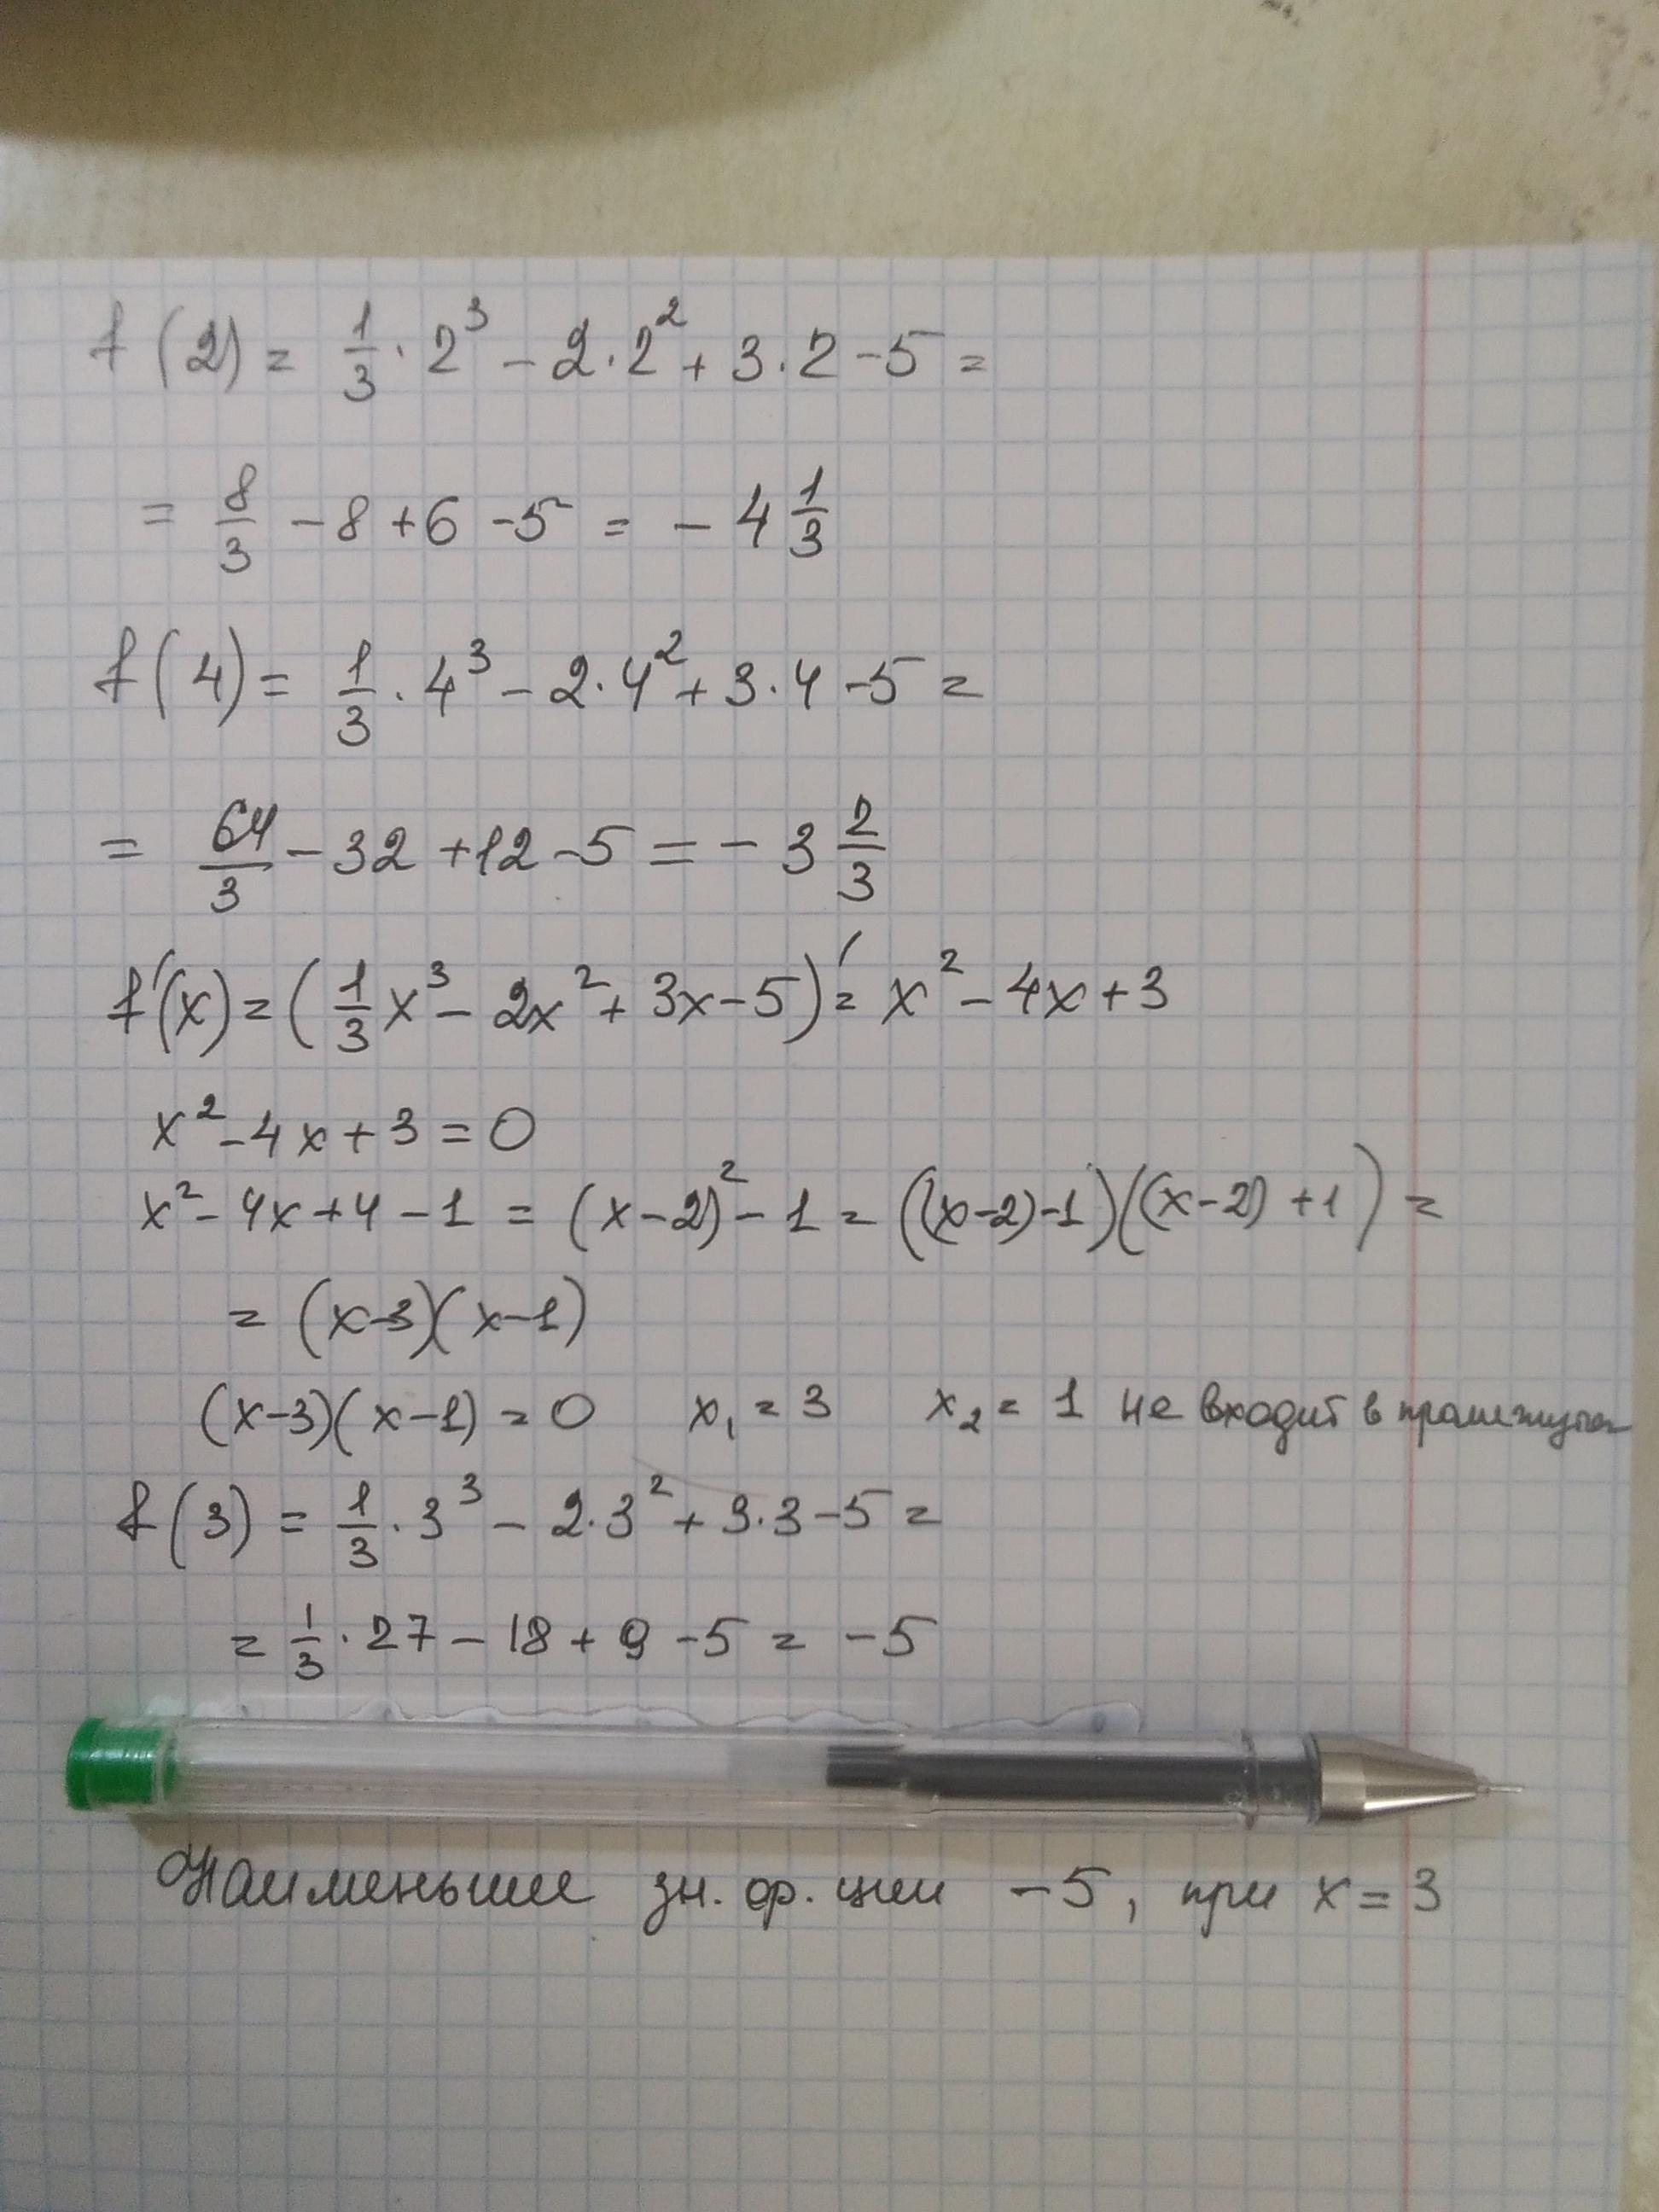 f(2) = 1/3 · 2³ - 2 · 2² + 3 · 2 - 5 =
= 8/3 - 8 + 6 - 5 = - 4 1/3
f(4) = 1/3 · 4³ - 2 · 4² + 3 · 4 - 5 =
= 64/3 - 32 + 12 - 5 = - 3 2/3
f'(x) = (1/3 x³ - 2x² + 3x - 5)' = x² - 4x + 3
x² - 4x + 3 = 0
x² - 4x + 4 - 1 = (x - 2)² - 1 = ((x - 2) - 1)((x - 2) + 1) =
= (x - 3)(x - 1)
(x - 3)(x - 1) = 0 x₁ = 3 x₂ = 1 не входит в промежуток
f(3) = 1/3 · 3³ - 2 · 3² + 3 · 3 - 5 =
= 1/3 · 27 - 18 + 9 - 5 = -5
Наименьшее зн. ф. ции -5, при x = 3